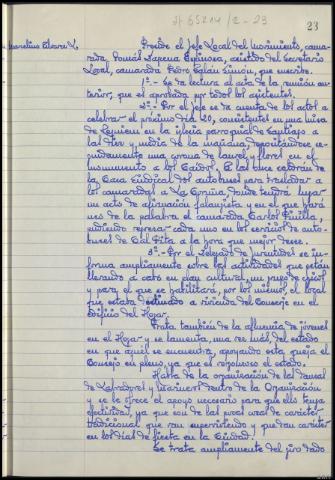 23
Preside el Jefe Local del Movimiento, cama-
rada Tomás Dapena Espinosa, asistido del Secretario
Local, camarada Pedro Galán Simón, que suscribe.
1º- Se da lectura al acta de la reunión an-
terior, que es aprobada por todos los asistentes.
2º- Por el Jefe se da cuenta de los actos a
celebrar el próximo día 20, consistentes en una misa
de Requiem en la iglesia parroquial de Santiago a
las diez y media de la mañana, depositándose se-
guidamente una corona de laurel y flores en el
monumento a los Caídos. A las once saldrán de
la Casa Sindical los autobuses para trasladar a
los camaradas a La Coruña donde tendrá lugar
un acto de afirmación falangista y en el que hará
uso de la palabra el camarada Carlos Pinilla,
pudiendo regresar cada uno en los servicios de auto-
buses de Cal Pita a la hora que mejor desee.
3º- Por el Delegado de Juventudes se in-
forma ampliamente sobre las actividades que están
llevando a cabo en plan cultural, un juego de ajedrez
y para el que se habilitará, por los mismos, el local
que estaba destinado a vivienda del Conserje en el
edificio del Hogar.
Trata también de la afluencia de jóvenes
en el Hogar y se lamenta, una vez más, del estado
en que aquel se encuentra, apoyando esta queja el
Consejo en pleno, ya que es vergonzoso el estado.
Habla de la organización de las Danzas
de Labradores y Marineros dentro de la Organización
y se le ofrece el apoyo necesario para que ello tenga
efectividad, ya que son de las pocas cosas de carácter
tradicional que van superviviendo y que dan carácter
en los días de fiesta en la Ciudad.
Se trata ampliamente del giro dado